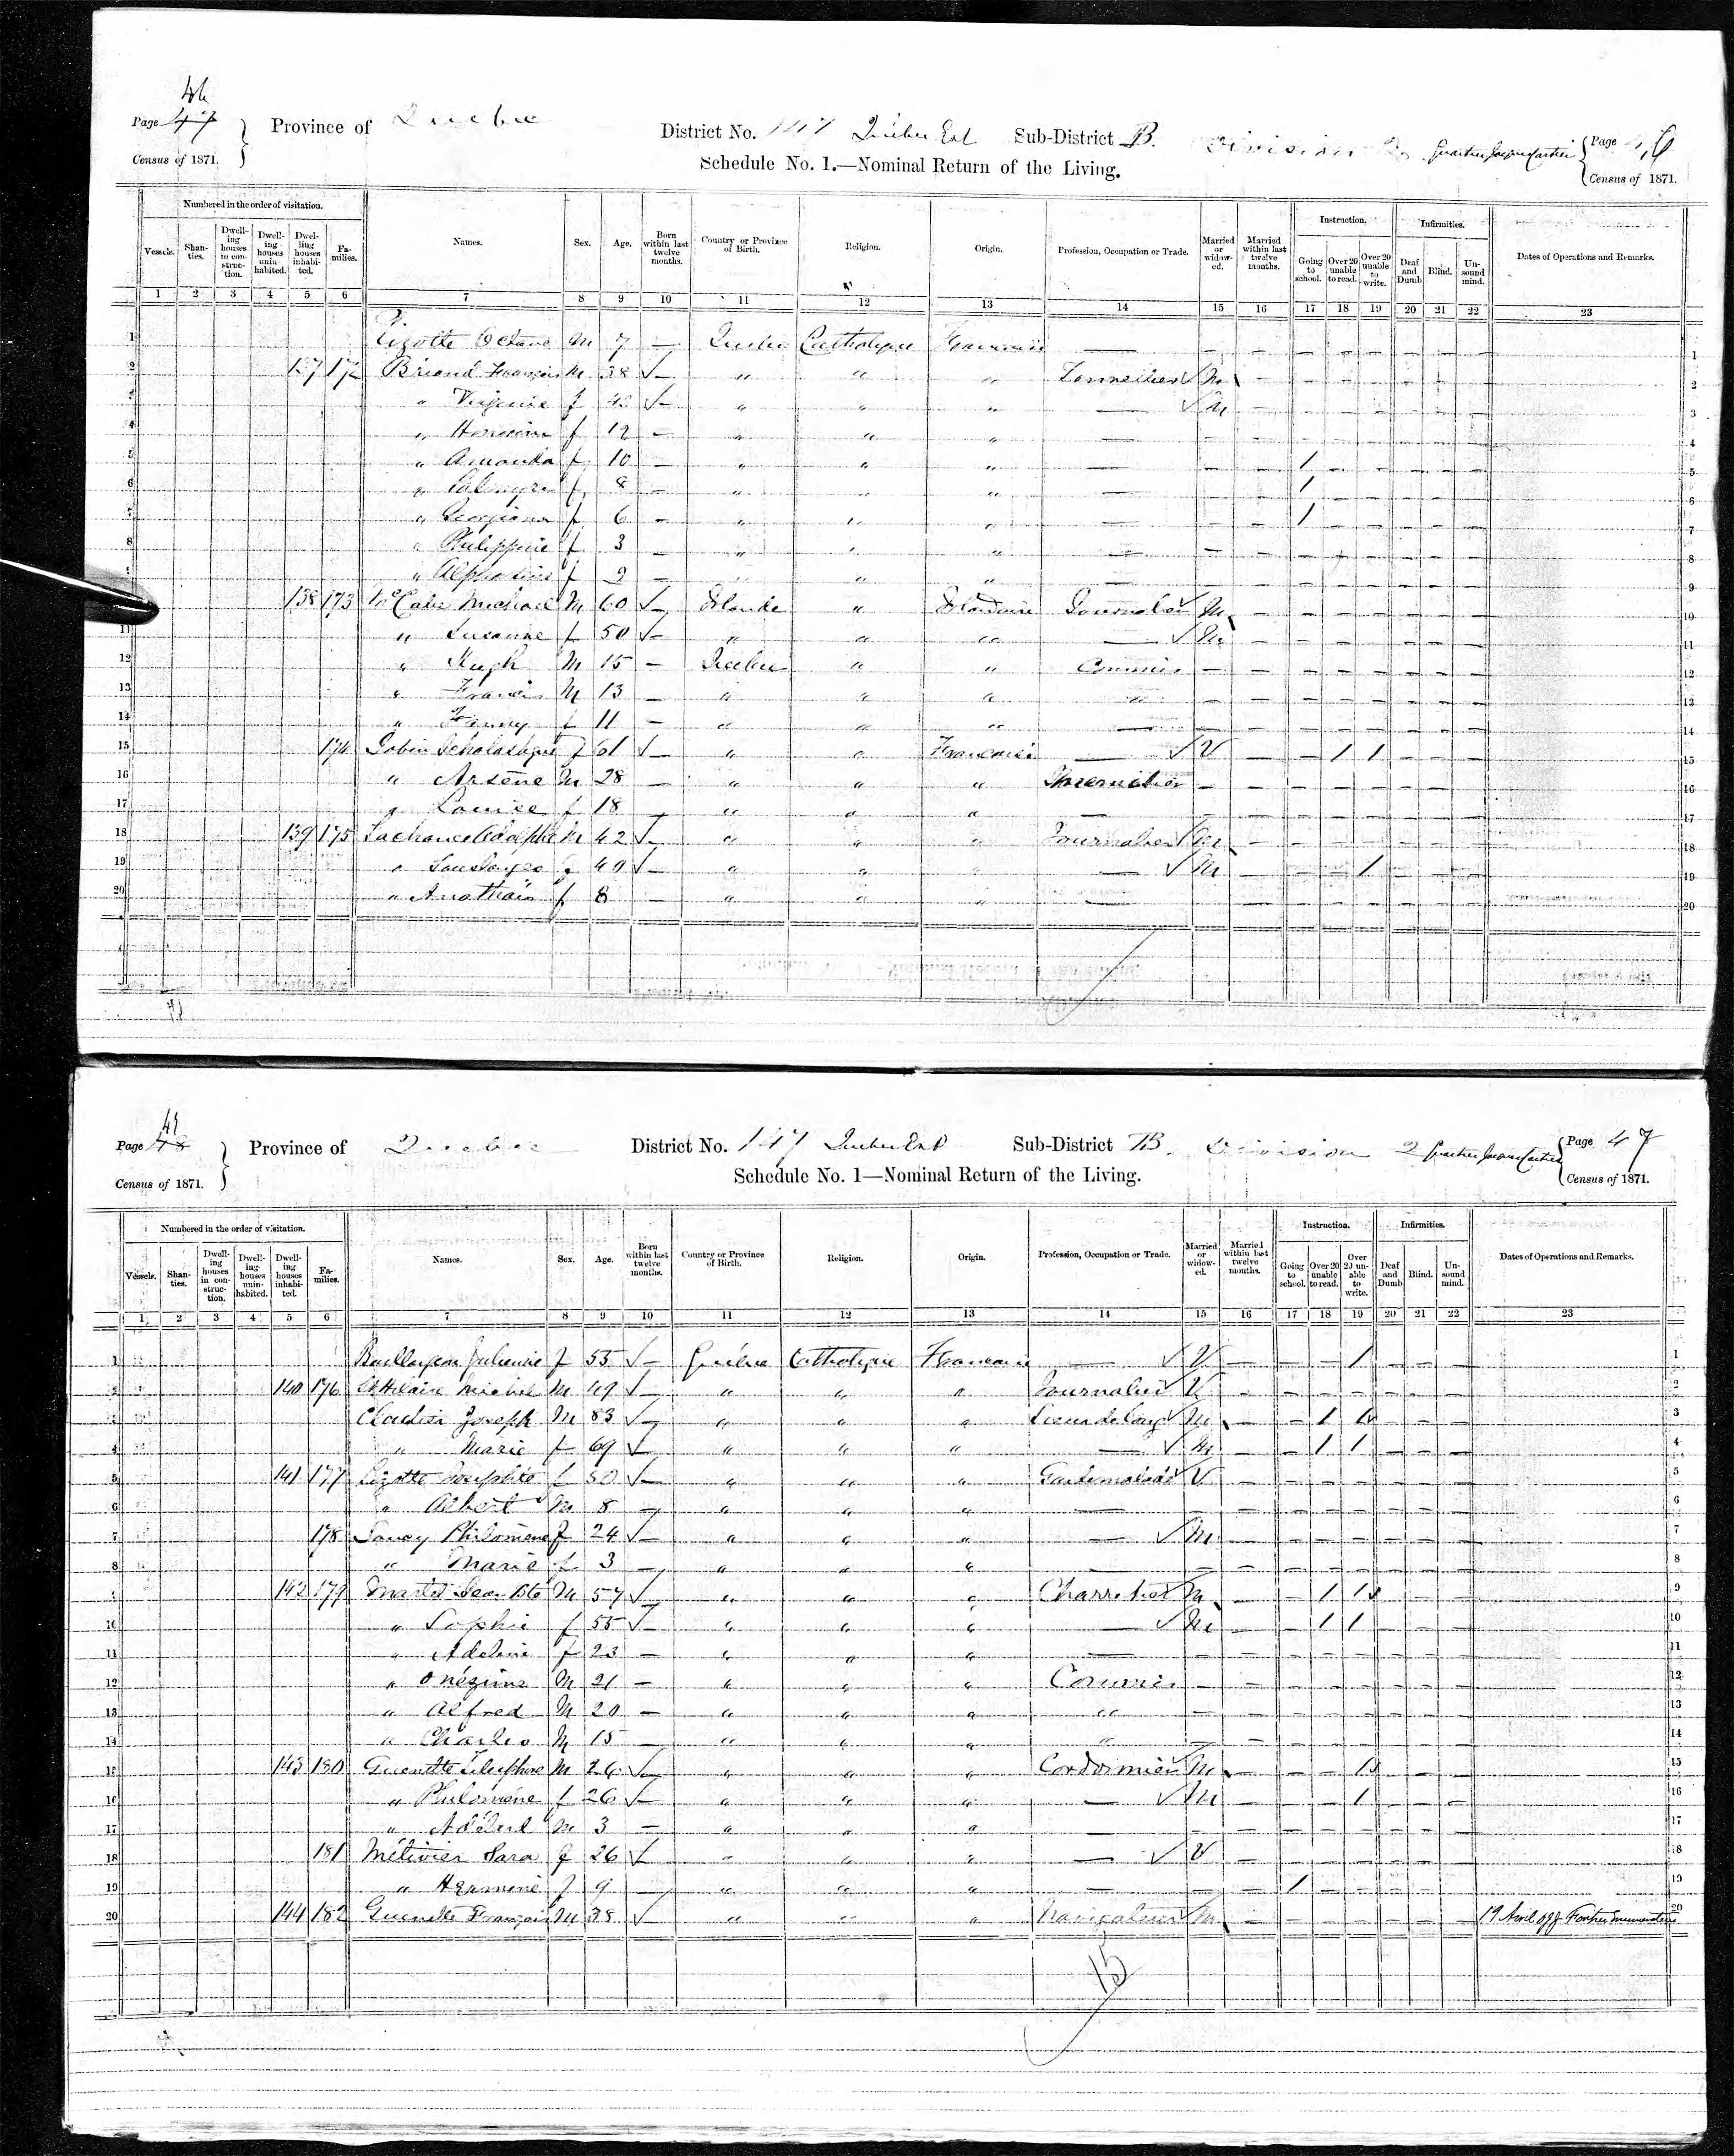 46
Page 47
Census of 1871.
Province of Quebec
District No. 147 Quebec Est Sub-District B. Division 2 Quartier Jacques Cartier
Page 46
Census of 1871.
Schedule No. 1.—Nominal Return of the Living.
Numbered in the order of visitation.
Vessels. Shanties. Dwelling houses in construction. Dwelling houses uninhabited. Dwelling houses inhabited. Families. Names. Sex. Age. Born within last twelve months. Country or Province of Birth. Religion. Origin. Profession, Occupation or Trade. Married or widowed. Married within last twelve months. Instruction. Going to school. Over 20 unable to read. Over 20 unable to write. Infirmities. Deaf and Dumb. Blind. Unsound mind. Dates of Operations and Remarks.
1 2 3 4 5 6 7 8 9 10 11 12 13 14 15 16 17 18 19 20 21 22 23
1 Lizotte Octave M 7 — Quebec Catholique Francaise — — — — — — — — — 1
2 137 172 Briand François M 38 √— " " " Tonnelier √ M — — — — — — — 2
3 " Virginie f 43 √— " " " — √ M — — — — — — — 3
4 " f 12 — " " " — — — — — — — — — 4
5 " Amanda f 10 — " " " — — — 1 — — — — — 5
6 " f 8 — " " " — — — 1 — — — — — 6
7 " Georgiana f 6 — " " " — — — 1 — — — — — 7
8 " Philippine f 3 — " " " — — — — — — — — — 8
9 " Alphonsine f 2 — " " " — — — — — — — — — 9
138 173 McCabe Michael M 60 √— Irlande " Irlandaise Journalier √ M — — — — — — — 10
11 " Susanne f 50 √— " " " — √ M — — — — — — — 11
12 " Hugh M 15 — Quebec " " Commis — — — — — — — — 12
13 " Francis M 13 — " " " " — — — — — — — — 13
14 " Fanny f 11 — " " " — — — — — — — — — 14
15 174 Gobin Scholastique f 61 √— " " Francaise — √ V — — 1 1 — — — 15
16 " Arsène M 28 — " " " Menuisier — — — — — — — — 16
17 " Louise f 18 — " " " — — — — — — — — — 17
18 139 175 Lachance Adolphe M 42 √— " " " Journalier √ M — — — — — — — 18
19 " f 40 √— " " " — √ M — — — 1 — — — 19
20 " f 8 — " " " — — — — — — — — — 20
47
Page 48
Census of 1871.
Province of Quebec
District No. 147 Quebec Est Sub-District B. Division 2 Quartier Jacques Cartier
Page 47
Census of 1871.
Schedule No. 1—Nominal Return of the Living.
Numbered in the order of visitation.
Vessels. Shanties. Dwelling houses in construction. Dwelling houses uninhabited. Dwelling houses inhabited. Families. Names. Sex. Age. Born within last twelve months. Country or Province of Birth. Religion. Origin. Profession, Occupation or Trade. Married or widowed. Married within last twelve months. Instruction. Going to school. Over 20 unable to read. Over 20 unable to write. Infirmities. Deaf and Dumb. Blind. Unsound mind. Dates of Operations and Remarks.
1 2 3 4 5 6 7 8 9 10 11 12 13 14 15 16 17 18 19 20 21 22 23
1 Baillargeon Julienne f 55 √— Québec Catholique Francaise — √ V — — — 1 — — — 1
2 140 176 St Hilaire Michel M 49 √— " " " Journalier V — — — — — — — 2
3 Cloutier Joseph M 83 √— " " " Scieur de long √ M — — 1 1 — — — 3
4 " Marie f 69 √— " " " — √ M — — 1 1 — — — 4
5 141 177 Lizotte Josephte f 50 √— " " " Gardemalade √ V — — — — — — — 5
6 " Albert M 8 — " " " — — — — — — — — — 6
7 178 Philomène f 24 √— " " " — √ M — — — — — — — 7
8 " Marie f 3 — " " " — — — — — — — — — 8
9 142 179 Martel Jean Bte M 57 √— " " " Charretier M — — 1 1 — — — 9
10 " Sophie f 55 √— " " " — √ M — — 1 1 — — — 10
11 " Adeline f 23 — " " " — — — — — — — — — 11
12 " Onézime M 21 — " " " Commis — — — — — — — — 12
13 " Alfred M 20 — " " " " — — — — — — — — 13
14 " Charles M 15 — " " " " — — — — — — — — 14
15 143 180 Guenette Telesphore M 26 √— " " " Cordonnier √ M — — — 1 — — — 15
16 " Philomène f 26 √— " " " — √ M — — — 1 — — — 16
17 " M 3 — " " " — — — — — — — — — 17
18 181 Métivier Sara f 26 √ " " " — √ V — — — — — — — 18
19 " Hermine f 9 — " " " — — — 1 — — — — — 19
20 144 182 Guenette François M 38 √ " " " Navigateur √ M — — — — — — — 19 Avril Fortier Enumerateur 20
15